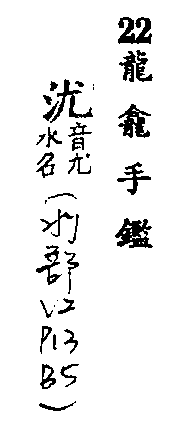 22龍龕手鑑
沋音尤水名(水部V2P13B5)